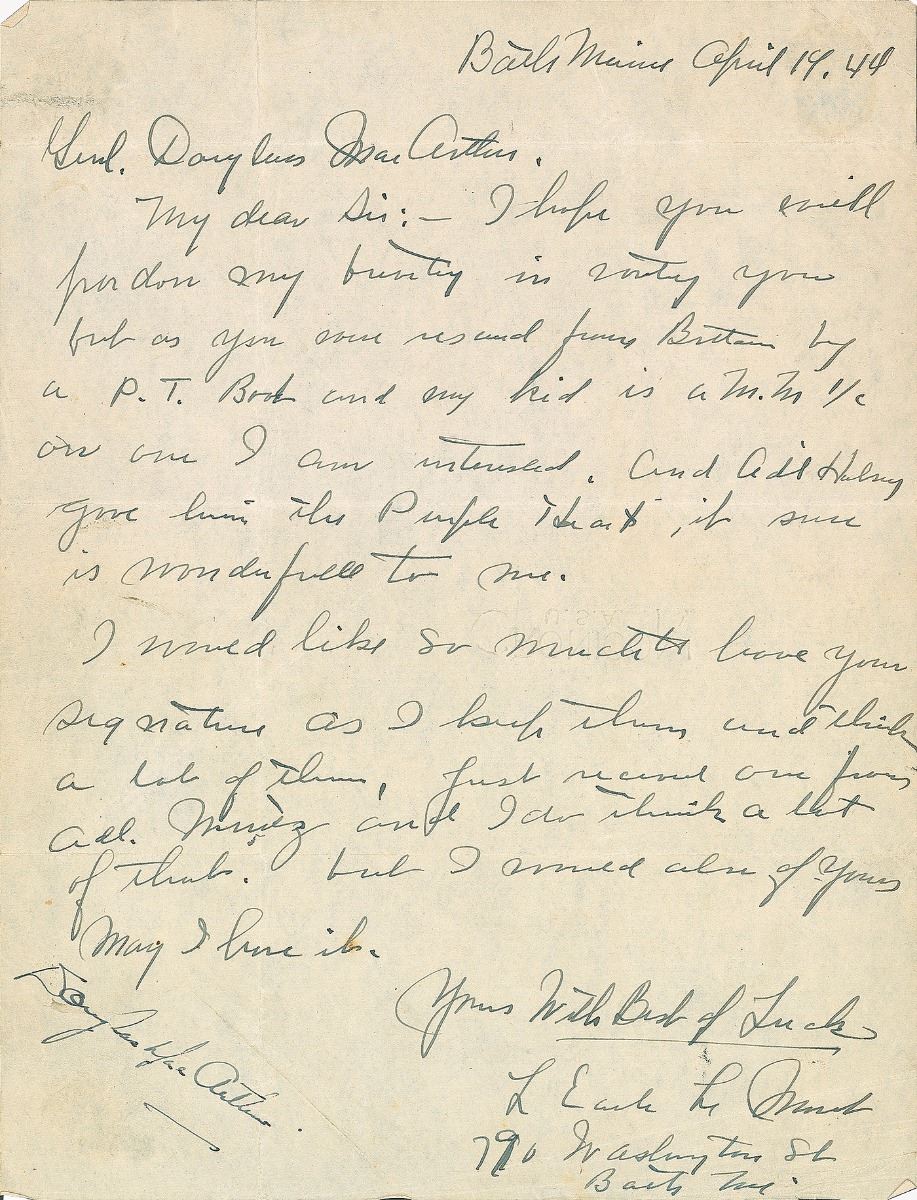 Bath Maine April 19. 44
Genl. Douglas MacArthur.
My dear Sir:- I hope you will
pardon my in you
but as you were from by
a P.T. Boat and my kid is a M.M 1/c
on one I am interested. and Adl Halsey
gave him the Purple Heart, it sure
is wonderfull to me.
I would like so much to have your
signature as I keep them and think
a lot of them, Just received one from
Adl. Nimitz and I do think a lot
of that. but I would also of yours
May I have it.
Yours With Best of Luck
Douglas MacArthur.
L Earle Le
790 Washington St
Bath Me.